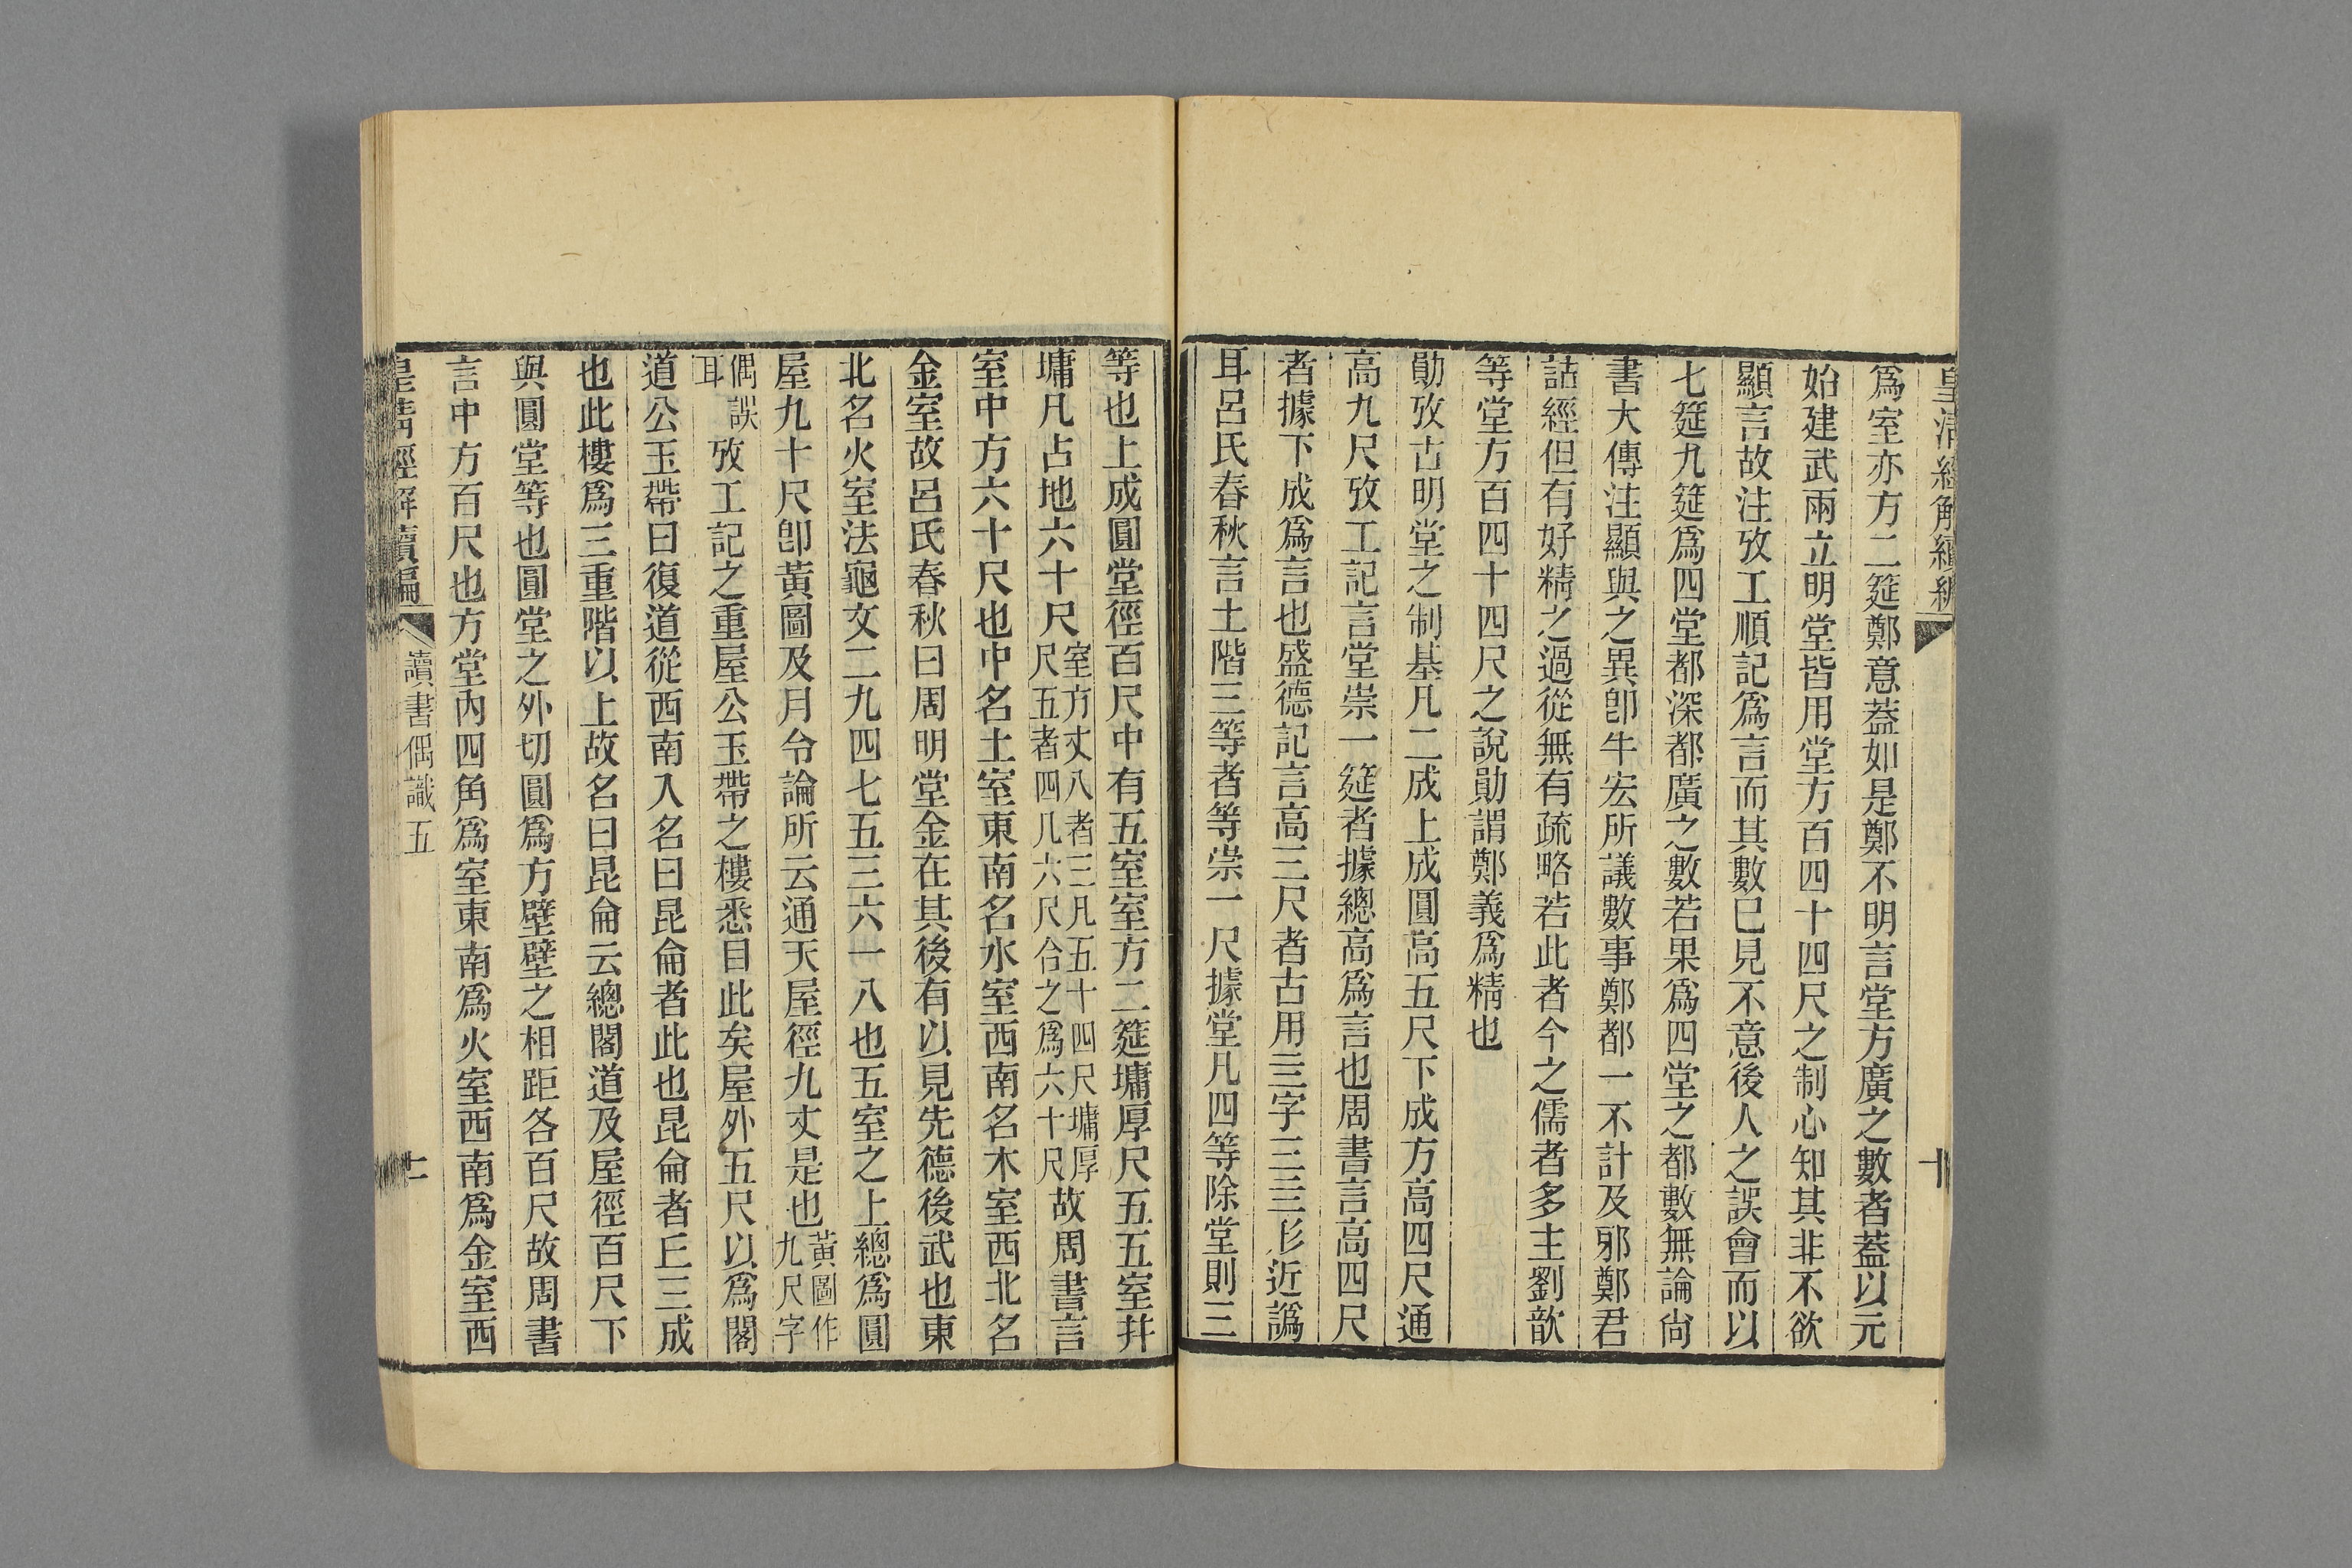 皇清經解續編
十
為室亦方二筵鄭意葢如是鄭不明言堂方廣之數者葢以元
始建武兩立明堂皆用堂方百四十四尺之制心知其非不欲
顯言故注攷工順記為言而其數已見不意後人之誤會而以
七筵九筵為四堂都深都廣之數若果為四堂之都數無論尙
書大傳注顯與之異卽牛宏所議數事鄭都一不計及邪鄭君
詁經但有好精之過從無有疏略若此者今之儒者多主劉歆
等堂方百四十四尺之說勛謂鄭義為精也
勛攷古明堂之制基凡二成上成圓高五尺下成方高四尺通
高九尺攷工記言堂崇一筵者據總高為言也周書言高四尺
者據下成為言也盛德記言高三尺者古用亖字三亖形近譌
耳呂氏春秋言土階三等者等崇一尺據堂凡四等除堂則三
等也上成圓堂徑百尺中有五室室方二筵墉厚尺五五室幷
墉凡占地六十尺室方丈八者三凡五十四尺墉厚
尺五者四凡六尺合之為六十尺故周書言
室中方六十尺也中名土室東南名水室西南名木室西北名
金室故呂氏春秋曰周明堂金在其後有以見先德後武也東
北名火室法龜文二九四七五三六一八也五室之上總為圓
屋九十尺卽黃圖及月令論所云通天屋徑九丈是也黃圖作
九尺字
偶誤
耳攷工記之重屋公玉帶之樓悉目此矣屋外五尺以為閣
道公玉帶曰復道從西南入名曰昆侖者此也昆侖者丘三成
也此樓為三重階以上故名曰昆侖云總閣道及屋徑百尺下
與圓堂等也圓堂之外切圓為方壁壁之相距各百尺故周書
言中方百尺也方堂內四角為室東南為火室西南為金室西
皇清經解續編
讀書偶識五
十一